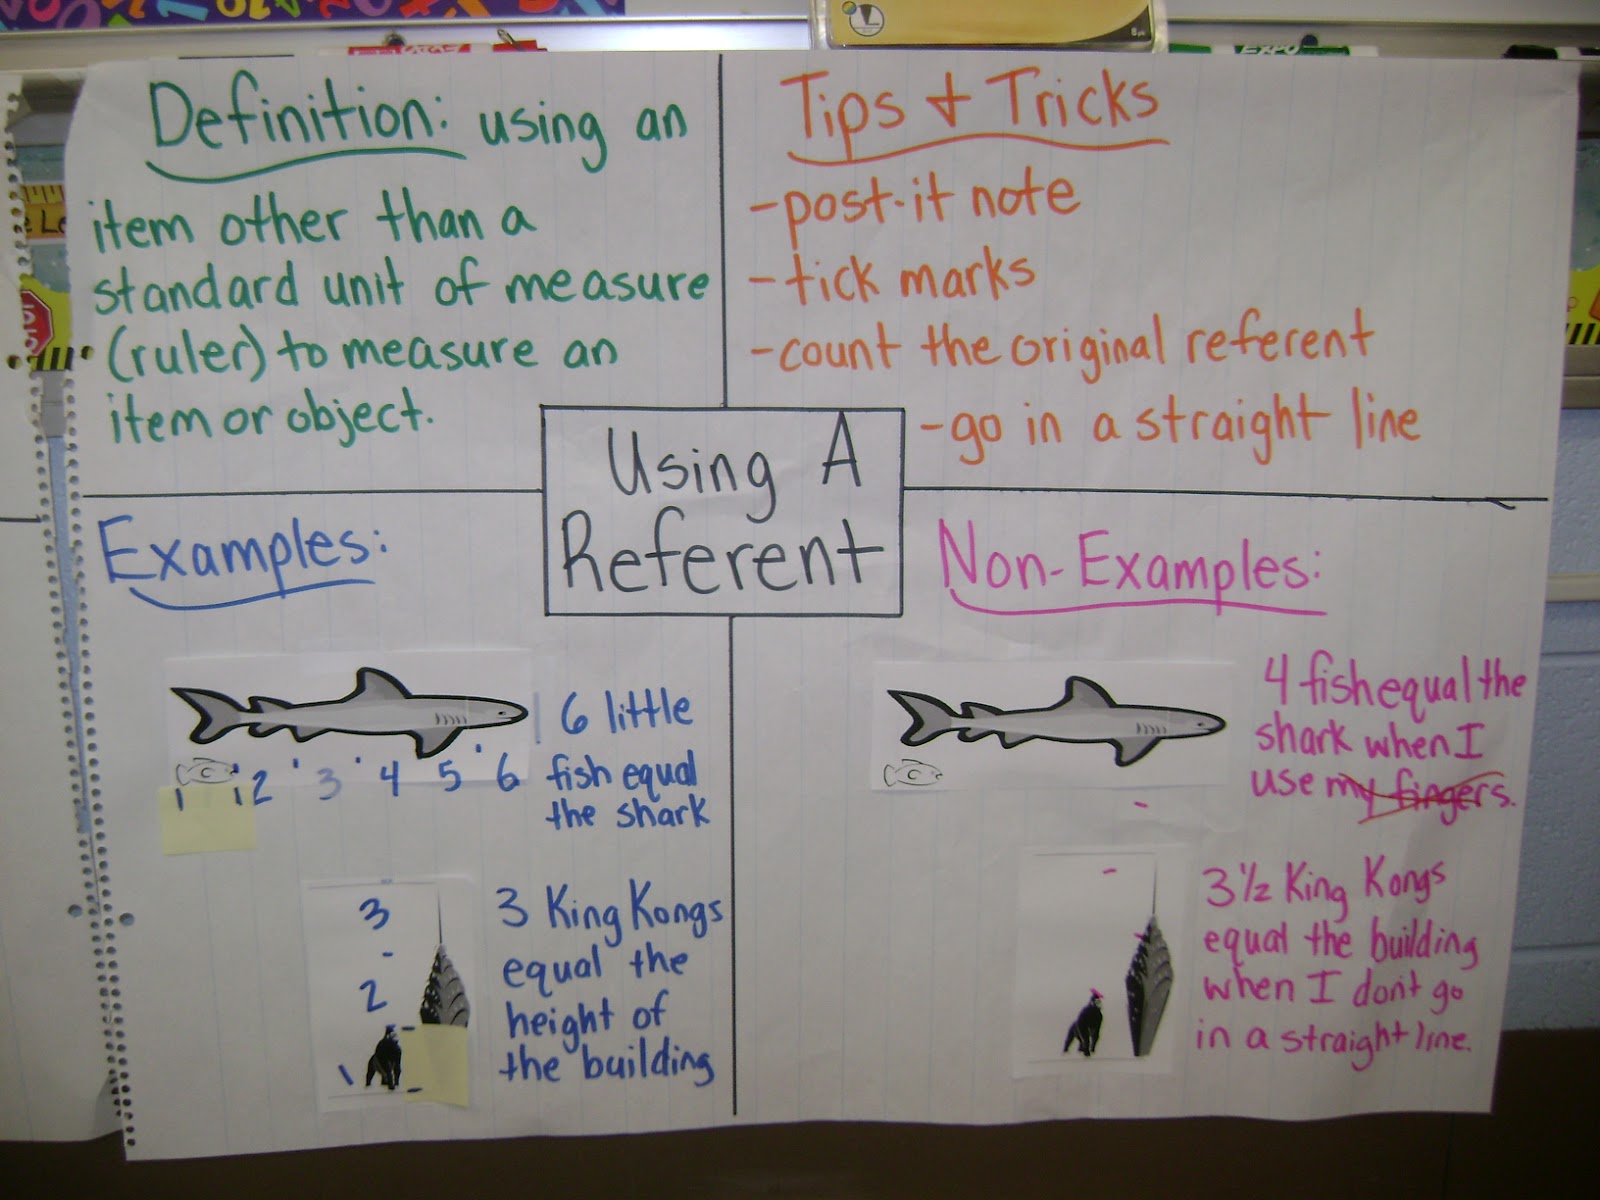 EXPO
EXPO
8 pk
Definition: using an
item other than a
standard unit of measure
(ruler) to measure an
item or object.
Tips & Tricks
-post-it note
-tick marks
-count the original referent
-go in a straight line
Using A
Referent
Examples:
6 little
fish equal
the shark
1 2 3 4 5 6
3 King Kongs
equal the
height of
the building
3
2
1
Non-Examples:
4 fish equal the
shark when I
use my fingers.
3 1/2 King Kongs
equal the building
when I don't go
in a straight line.